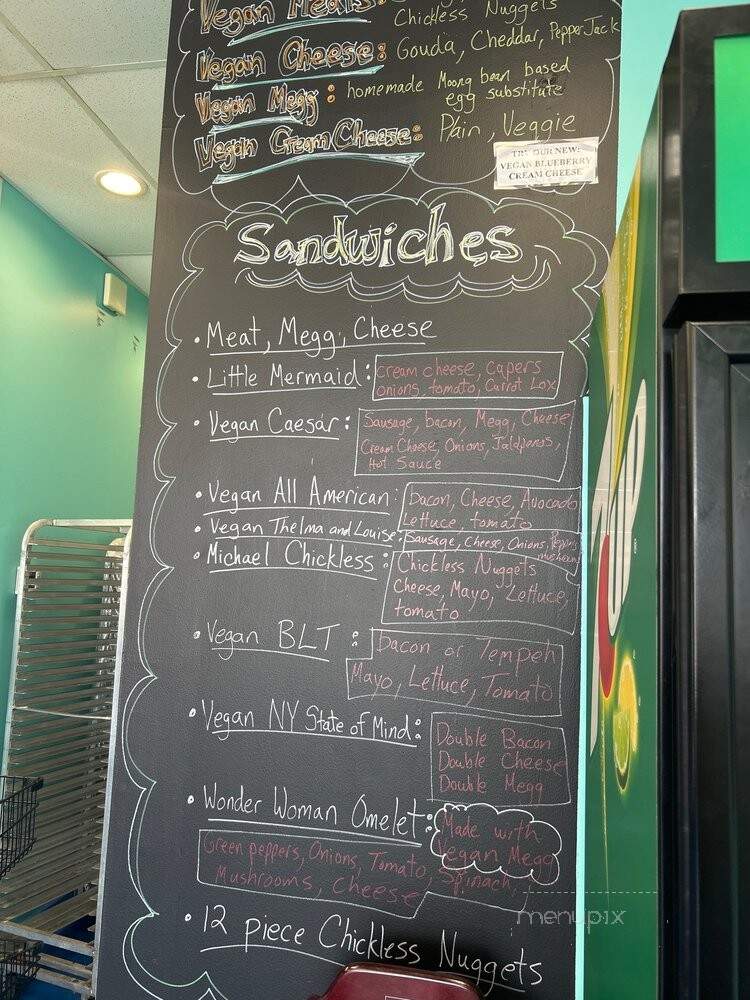 Vegan Meats:
Chickless Nuggets
Vegan Cheese: Gouda, Cheddar, PepperJack
Vegan Megg: homemade Moong bean based
egg substitute
Vegan Cream Cheese: Plain, Veggie
TRY OUR NEW:
VEGAN BLUEBERRY
CREAM CHEESE
Sandwiches
• Meat, Megg, Cheese
• Little Mermaid: cream cheese, capers
onions, tomato, Carrot Lox
• Vegan Caesar: Sausage, bacon, Megg, Cheese
Cream Cheese, Onions, Jalapanos,
Hot Sauce
• Vegan All American: Bacon, Cheese, Avocado
Lettuce, tomato
• Vegan Thelma and Louise: Sausage, Cheese, Onions,
• Michael Chickless: Chickless Nuggets
Cheese, Mayo, Lettuce,
tomato
• Vegan BLT: Bacon or Tempeh
Mayo, Lettuce, Tomato
• Vegan NY State of Mind: Double Bacon
Double Cheese
Double Megg
• Wonder Woman Omelet: Made with
Vegan Megg
Green peppers, Onions, Tomato, Spinach,
Mushrooms, Cheese
• 12 piece Chickless Nuggets
7UP
menupix